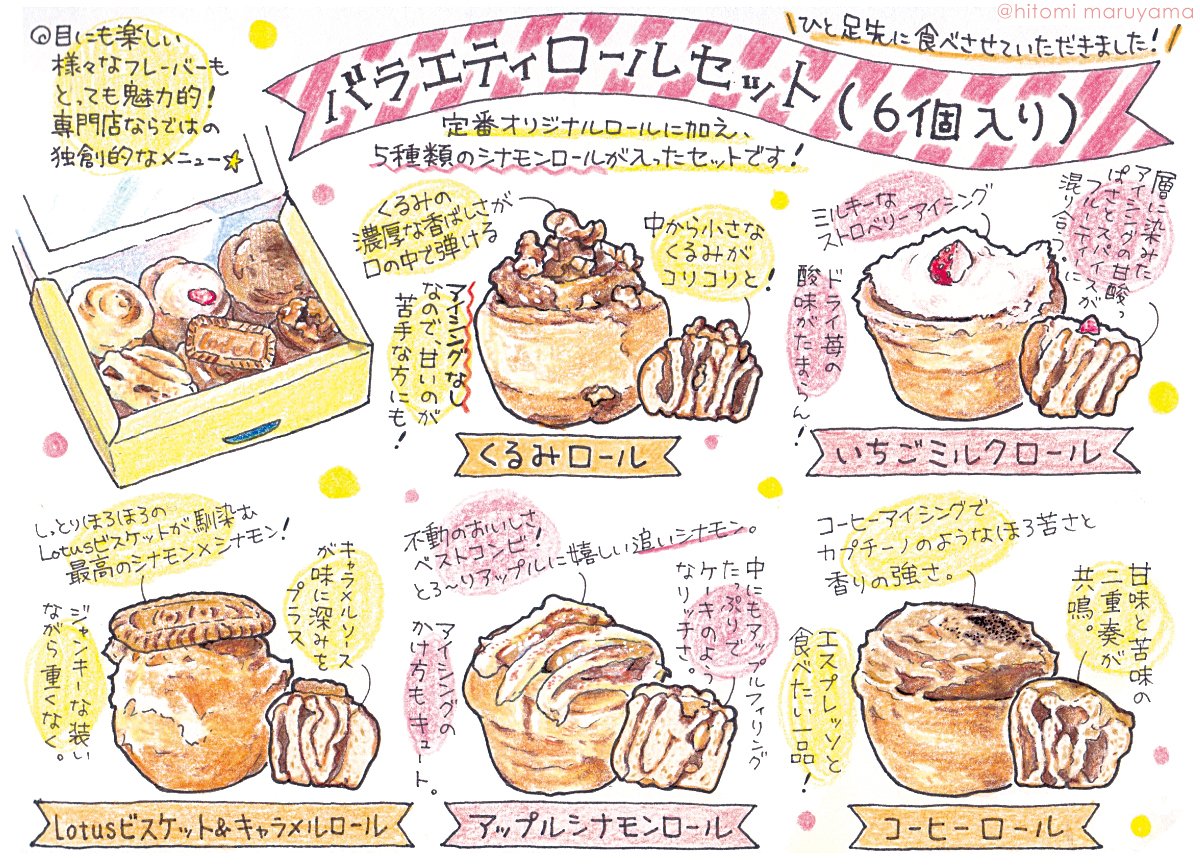 @hitomi maruyama
ひと足先に食べさせていただきました!
バラエティロールセット(6個入り)
定番オリジナルロールに加え、
5種類のシナモンロールが入ったセットです!
目にも楽しい
様々なフレーバーも
とっても魅力的!
専門店ならではの
独創的なメニュー☆
くるみの
濃厚な香ばしさが
口の中で弾ける
アイシングなし
なので、甘いのが
苦手な方にも!
中から小さな
くるみが
コリコリと!
くるみロール
ミルキーな
ストロベリーアイシング
ドライ苺の
酸味がたまらん!
層に染みた
アイシングの甘酸っ
ぱさとスパイスが
フルーティーに
混り合う。
いちごミルクロール
しっとりほろほろの
Lotusビスケットが馴染む
最高のシナモン×シナモン!
キャラメルソース
が味に深みを
プラス
ジャンキーな装い
ながら重くなく。
Lotusビスケット&キャラメルロール
不動のおいしさ!
ベストコンビ!
とろ〜りアップルに嬉しい追いシナモン。
中にもアップルフィリング
たっぷりで
ケーキのよう
なリッチさ。
アイシングの
かけ方もキュート。
アップルシナモンロール
コーヒーアイシングで
カプチーノのようなほろ苦さと
香りの強さ。
甘味と苦味の
二重奏が
共鳴。
エスプレッソと
食べたい一品!
コーヒーロール